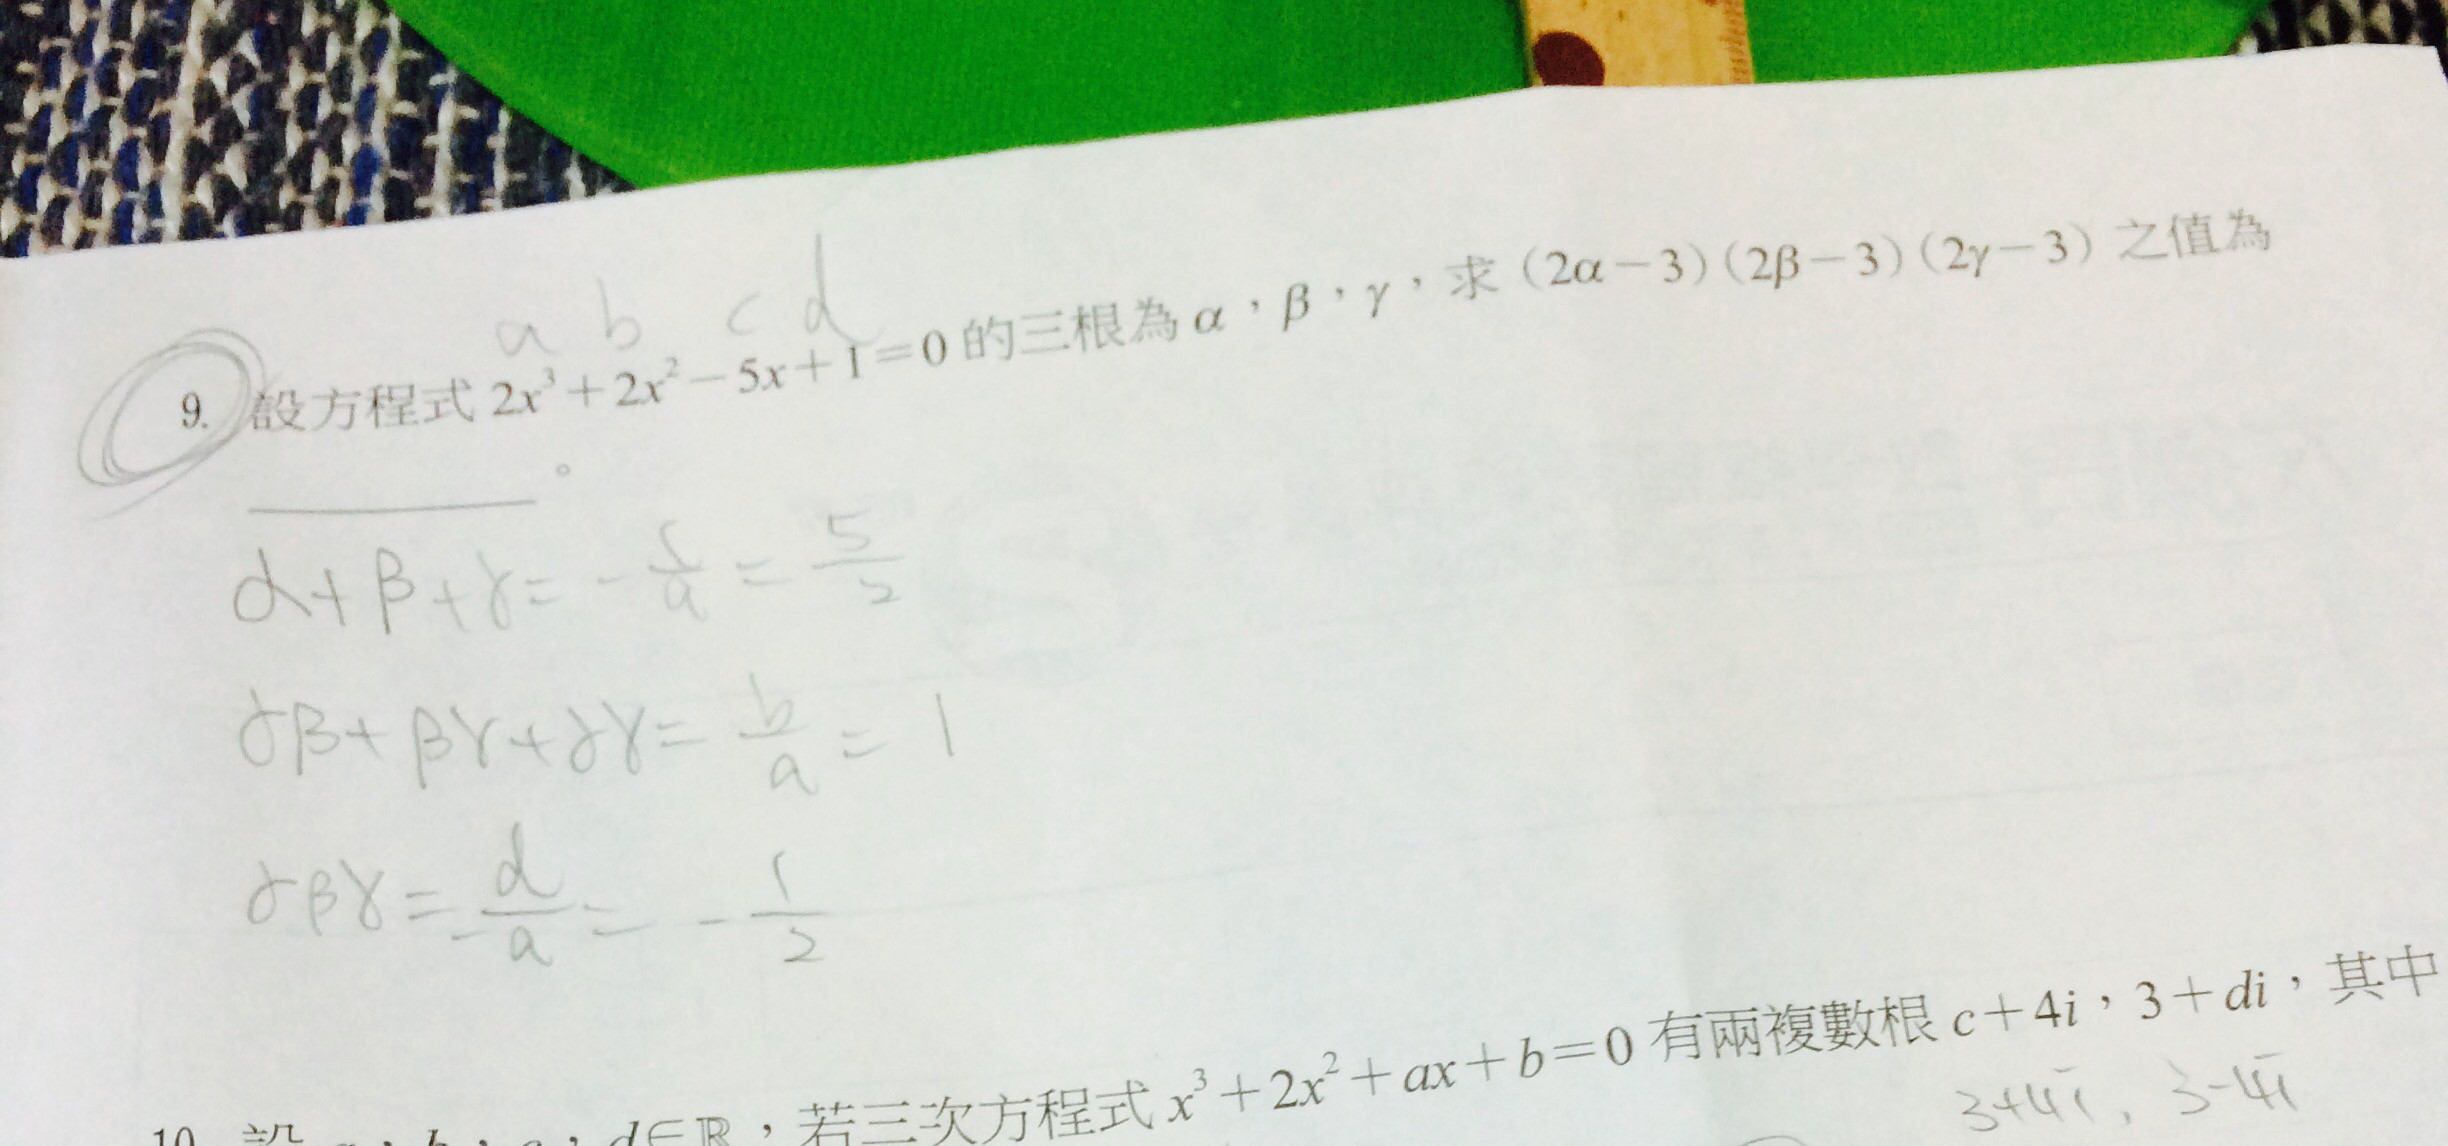 a b c d
9. 設方程式 2x³+2x²-5x+1=0 的三根為 α，β，γ，求 (2α-3)(2β-3)(2γ-3) 之值為
。
α+β+γ=-c/a=5/2
αβ+βγ+αγ=b/a=1
αβγ=-d/a=-1/2
10. 設 a，b，c，d∈ℝ，若三次方程式 x³+2x²+ax+b=0 有兩複數根 c+4i，3+di，其中
3+4i, 3-4i